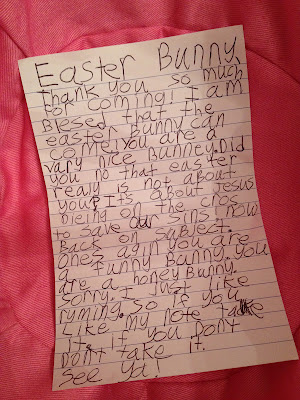 Easter Bunny
thank you so much
for coming! I am
Blesed that the
easter Bunny can
come, you are a
vary nice Bunney. Did
you no that easter
realy is not about
you? It's about Jesus
Dieing on the cros
to save our sins! now
Back on subject.
ones agin you are
a funny Bunny. you
are a honey Bunny.
sorry. I just like
ryming. So if you
Like my note take
it. if you Dont
Dont take it.
see ya!